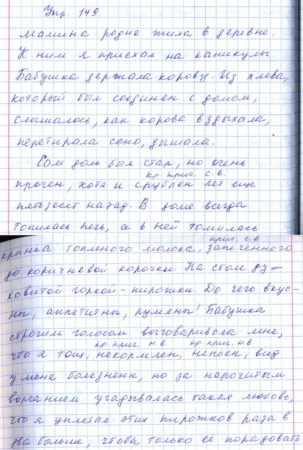 Упр. 149.
Мамина родня жила в деревне.
К ним я приехал на каникулы.
Бабушка держала корову. Из хлева,
который был соединен с домом,
слышалось, как корова вздыхала,
перетирала сено, дышала.
Сам дом был стар, но очень
кр. прич. с.в.
прочен, хотя и срублен лет еще
пятьдесят назад. В доме всегда
топилась печь, а в ней томилась
прич. с.в
крынка топленого молока, запеченного
до коричневой корочки. На стол ду-
ховитой горкой - пирожки. До чего вкус-
ны, аппетитны, румяны! Бабушка
строгим голосом выговаривала мне,
кр. прич. н.в кр. прич. н.в
что я тощ, некормлен, непоен, вид
у меня болезнен, но за нарочитым
ворчанием угадывалась такая любовь,
что я уплетал этих пирожков раза в
два больше, чтобы только ее порадовать